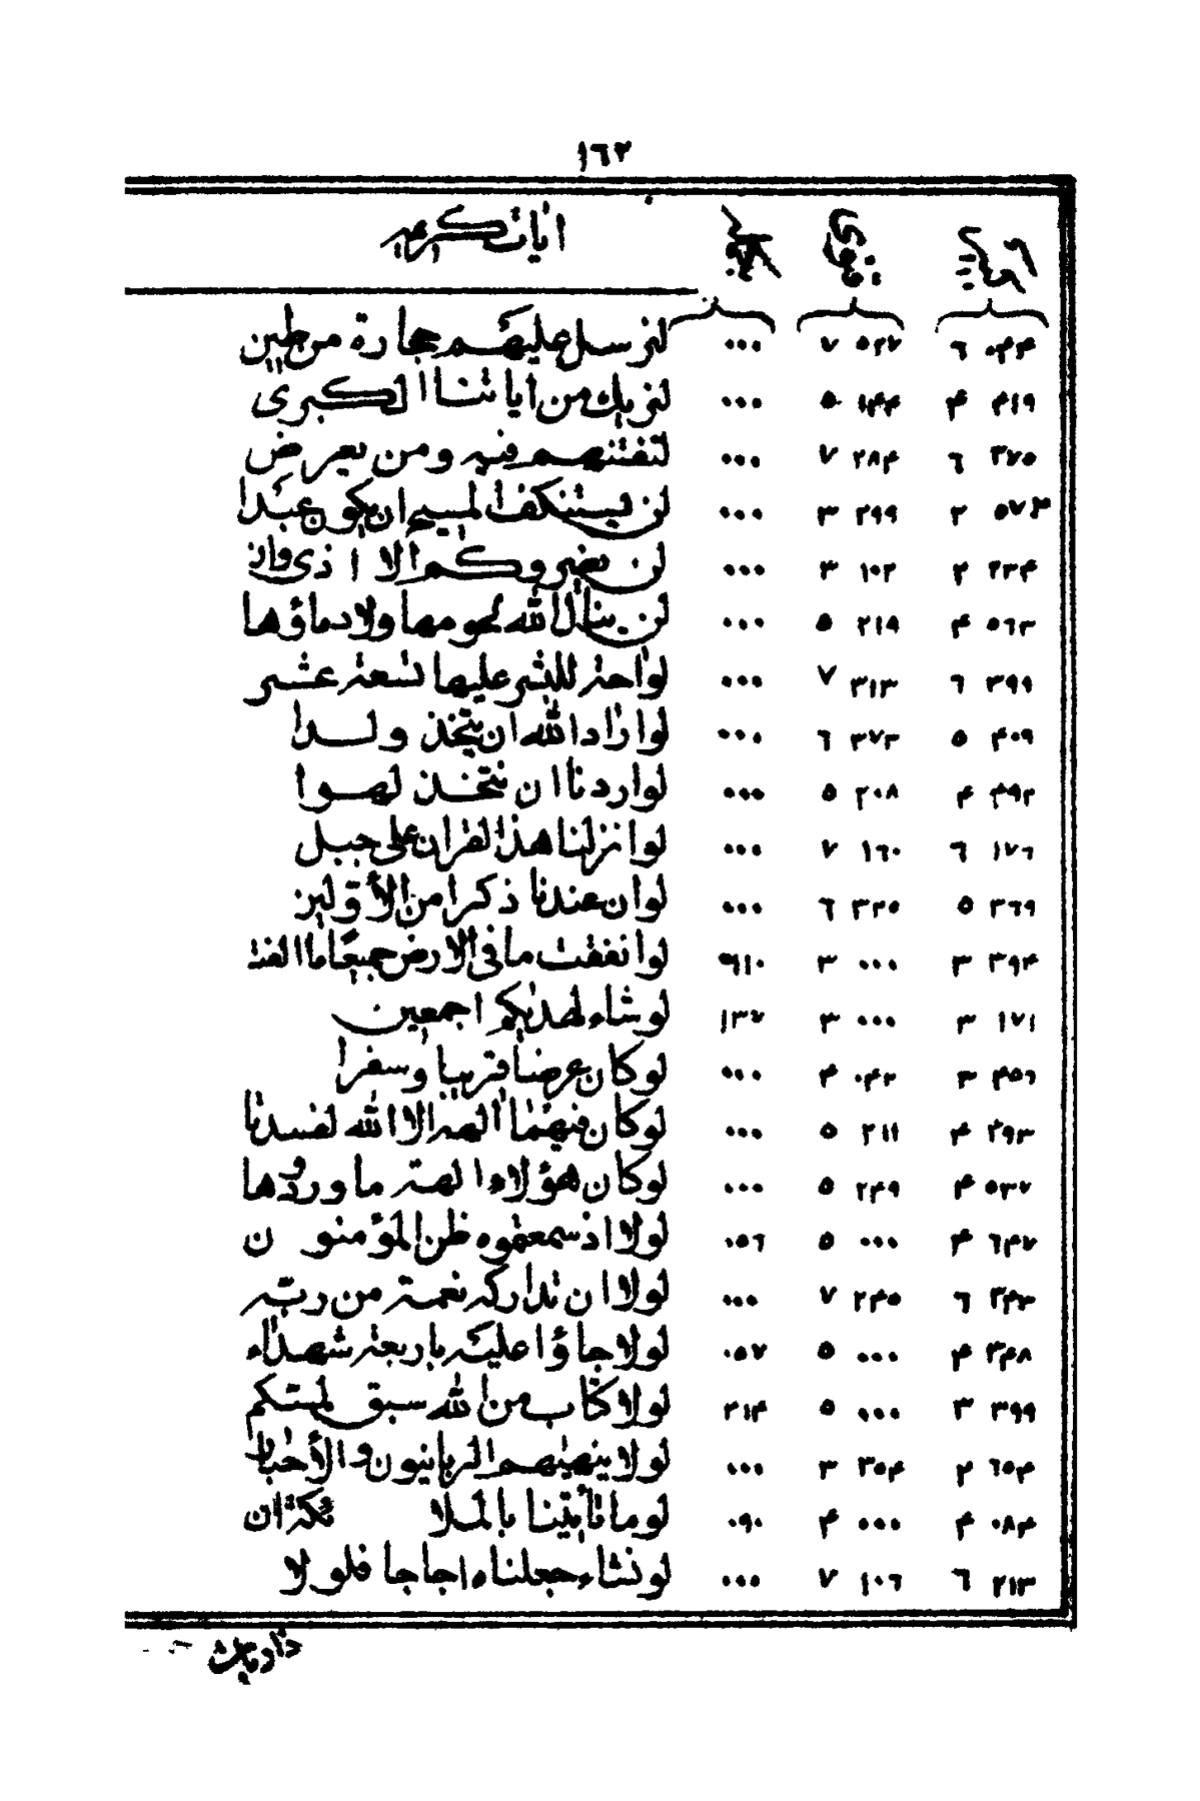 ١٦٢
ايات كريمه
٠٤٤ ٦ ٥٢٧ ٧ ٠٠٠ لنرسل عليهم حجارة من طين
٤١٩ ٤ ١٤٤ ٥ ٠٠٠ لنريك من اياتنا الكبرى
٣٧٥ ٦ ٢٨٤ ٧ ٠٠٠ لنفتنهم فيه ومن يعرض
٥٧٣ ٢ ٢٩٩ ٣ ٠٠٠ لن يستنكف المسيح ان يكون عبدا
٢٣٤ ٢ ١٠٢ ٣ ٠٠٠ لن يضروكم الا اذى وان
٥٦٣ ٤ ٢١٩ ٥ ٠٠٠ لن ينال الله لحومها ولا دماؤها
٣٩٩ ٦ ٣١٣ ٧ ٠٠٠ لواحة للبشر عليها تسعة عشر
٤٠٩ ٥ ٣٧٣ ٦ ٠٠٠ لو اراد الله ان يتخذ ولدا
٤٩٢ ٤ ٢٠٨ ٥ ٠٠٠ لو اردنا ان نتخذ لهوا
١٧٦ ٦ ١٦٠ ٧ ٠٠٠ لو انزلنا هذا القران على جبل
٣٦٩ ٥ ٣٣٥ ٦ ٠٠٠ لو ان عندنا ذكرا من الأولين
٣٩٤ ٣ ٠٠٠ ٣ لو انفقت ما فى الارض جميعا ما الفت
١٧١ ٣ ٠٠٠ ٣ ١٣٧ لو شاء لهديكم اجمعين
٤٥٦ ٣ ٠٤٢ ٤ ٠٠٠ لو كان عرضا قريبا وسفرا
٤٩٣ ٤ ٢١١ ٥ ٠٠٠ لو كان فيهما الهة الا الله لفسدتا
٥٣٧ ٤ ٢٤٩ ٥ ٠٠٠ لو كان هؤلاء الهة ما وردوها
٦٤٧ ٤ ٠٠٠ ٥ ٠٥٦ لولا اذ سمعتموه ظن المؤمنون
٣٤٣ ٦ ٢٤٥ ٧ ٠٠٠ لولا ان تداركه نعمة من ربه
٣٤٨ ٤ ٠٠٠ ٥ ٠٥٧ لولا جاؤا عليه باربعة شهداء
٣٩٩ ٣ ٠٠٠ ٥ ٢١٤ لولا كتاب من الله سبق لمسكم
٦٥٤ ٢ ٣٥٤ ٣ ٠٠٠ لولا ينهيهم الربانيون والأحبار
٠٨٤ ٤ ٠٠٠ ٤ ٠٩٠ لو ما تأتينا بالملا ئكة ان
٢١٣ ٦ ١٠٦ ٧ ٠٠٠ لو نشاء جعلناه اجاجا فلولا